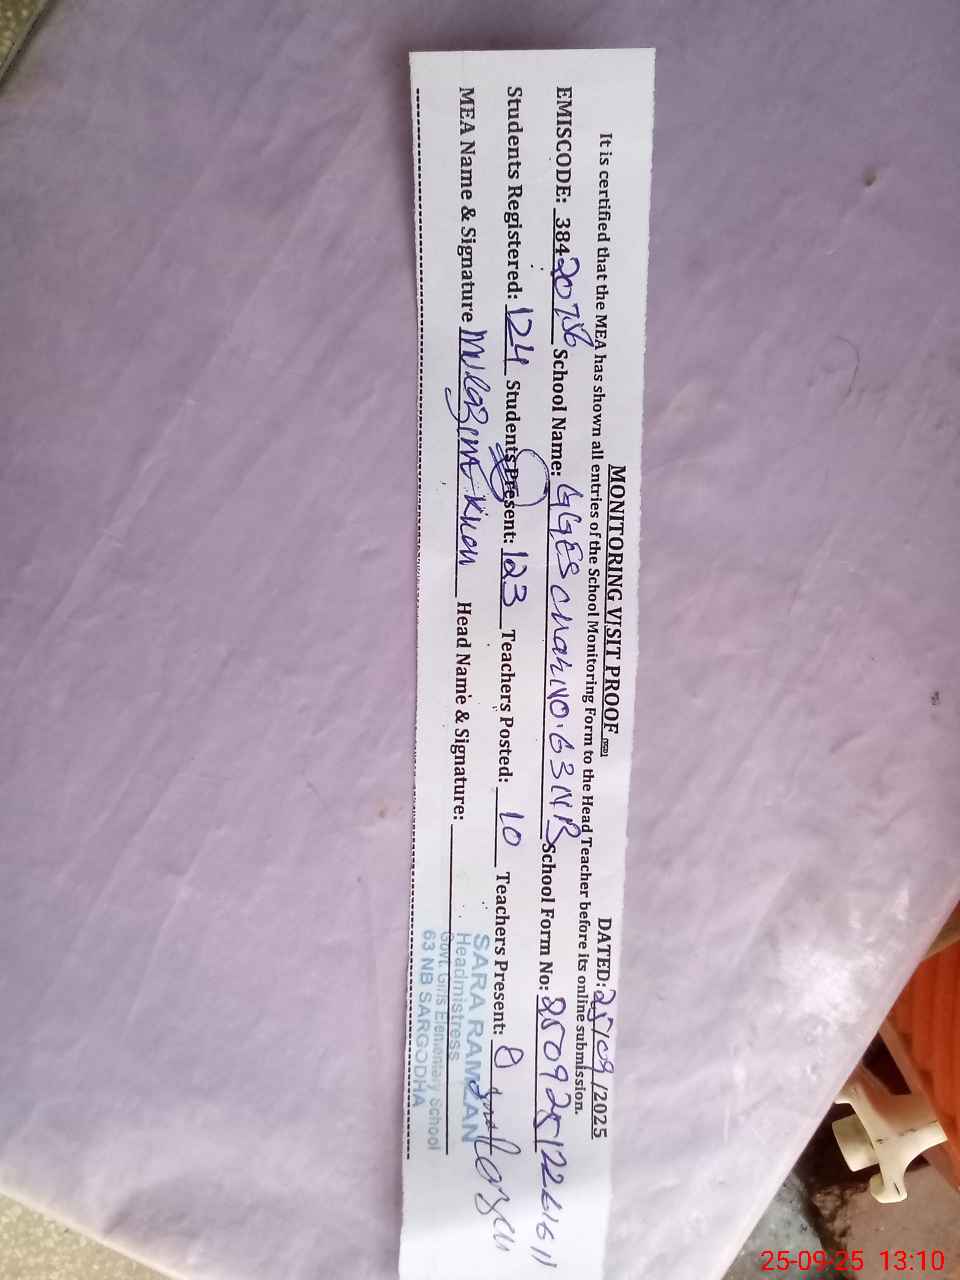 MONITORING VISIT PROOF
DATED: 25/09/2025
It is certified that the MEA has shown all entries of the School Monitoring Form to the Head Teacher before its online submission.
EMISCODE: 38420756 School Name: GGES Chak NO. 63 NB School Form No:
Students Registered: 124 Students Present: 123 Teachers Posted: 10 Teachers Present: 8
MEA Name & Signature Mulazim Khan Head Name & Signature:
SARA RAMZAN
Headmistress
Govt. Girls Elementary School
63 NB SARGODHA
25-09-25 13:10